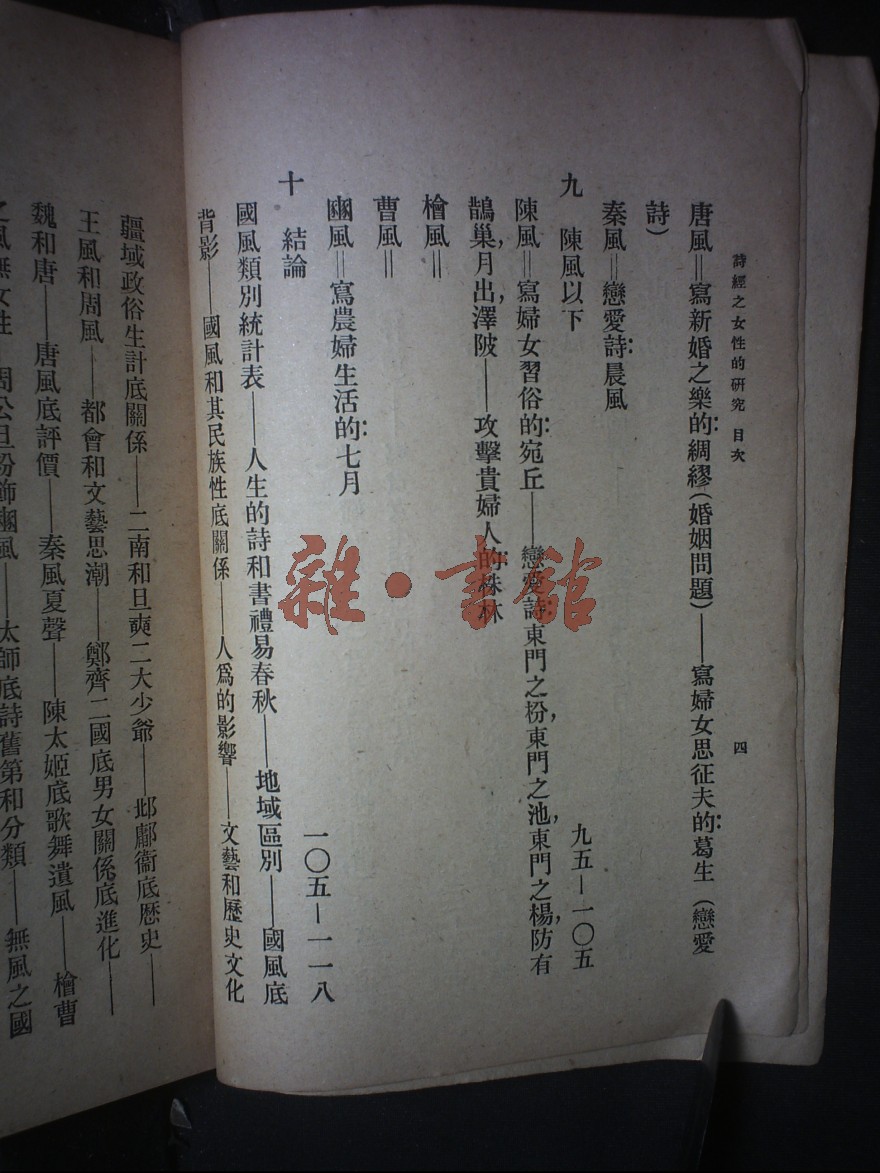 詩經之女性的研究 目次
四
唐風＝寫新婚之樂的:綢繆(婚姻問題)——寫婦女思征夫的:葛生(戀愛
詩)
秦風＝戀愛詩:晨風
九 陳風以下 九五—一〇五
陳風＝寫婦女習俗的:宛丘——戀愛詩:東門之枌,東門之池,東門之楊,防有
鵲巢,月出,澤陂——攻擊貴婦人的:株林
檜風＝
曹風＝
豳風＝寫農婦生活的:七月
十 結論 一〇五—一一八
國風類別統計表——人生的詩和書禮易春秋——地域區別——國風底
背影——國風和其民族性底關係——人爲的影響——文藝和歷史文化
疆域政俗生計底關係——二南和旦奭二大少爺——邶鄘衞底歷史——
王風和周風——都會和文藝思潮——鄭齊二國底男女關係底進化——
魏和唐——唐風底評價——秦風夏聲——陳太姬底歌舞遺風——檜曹
之風無女性——周公旦粉飾豳風——太師底詩舊第和分類——無風之國
雜·書館